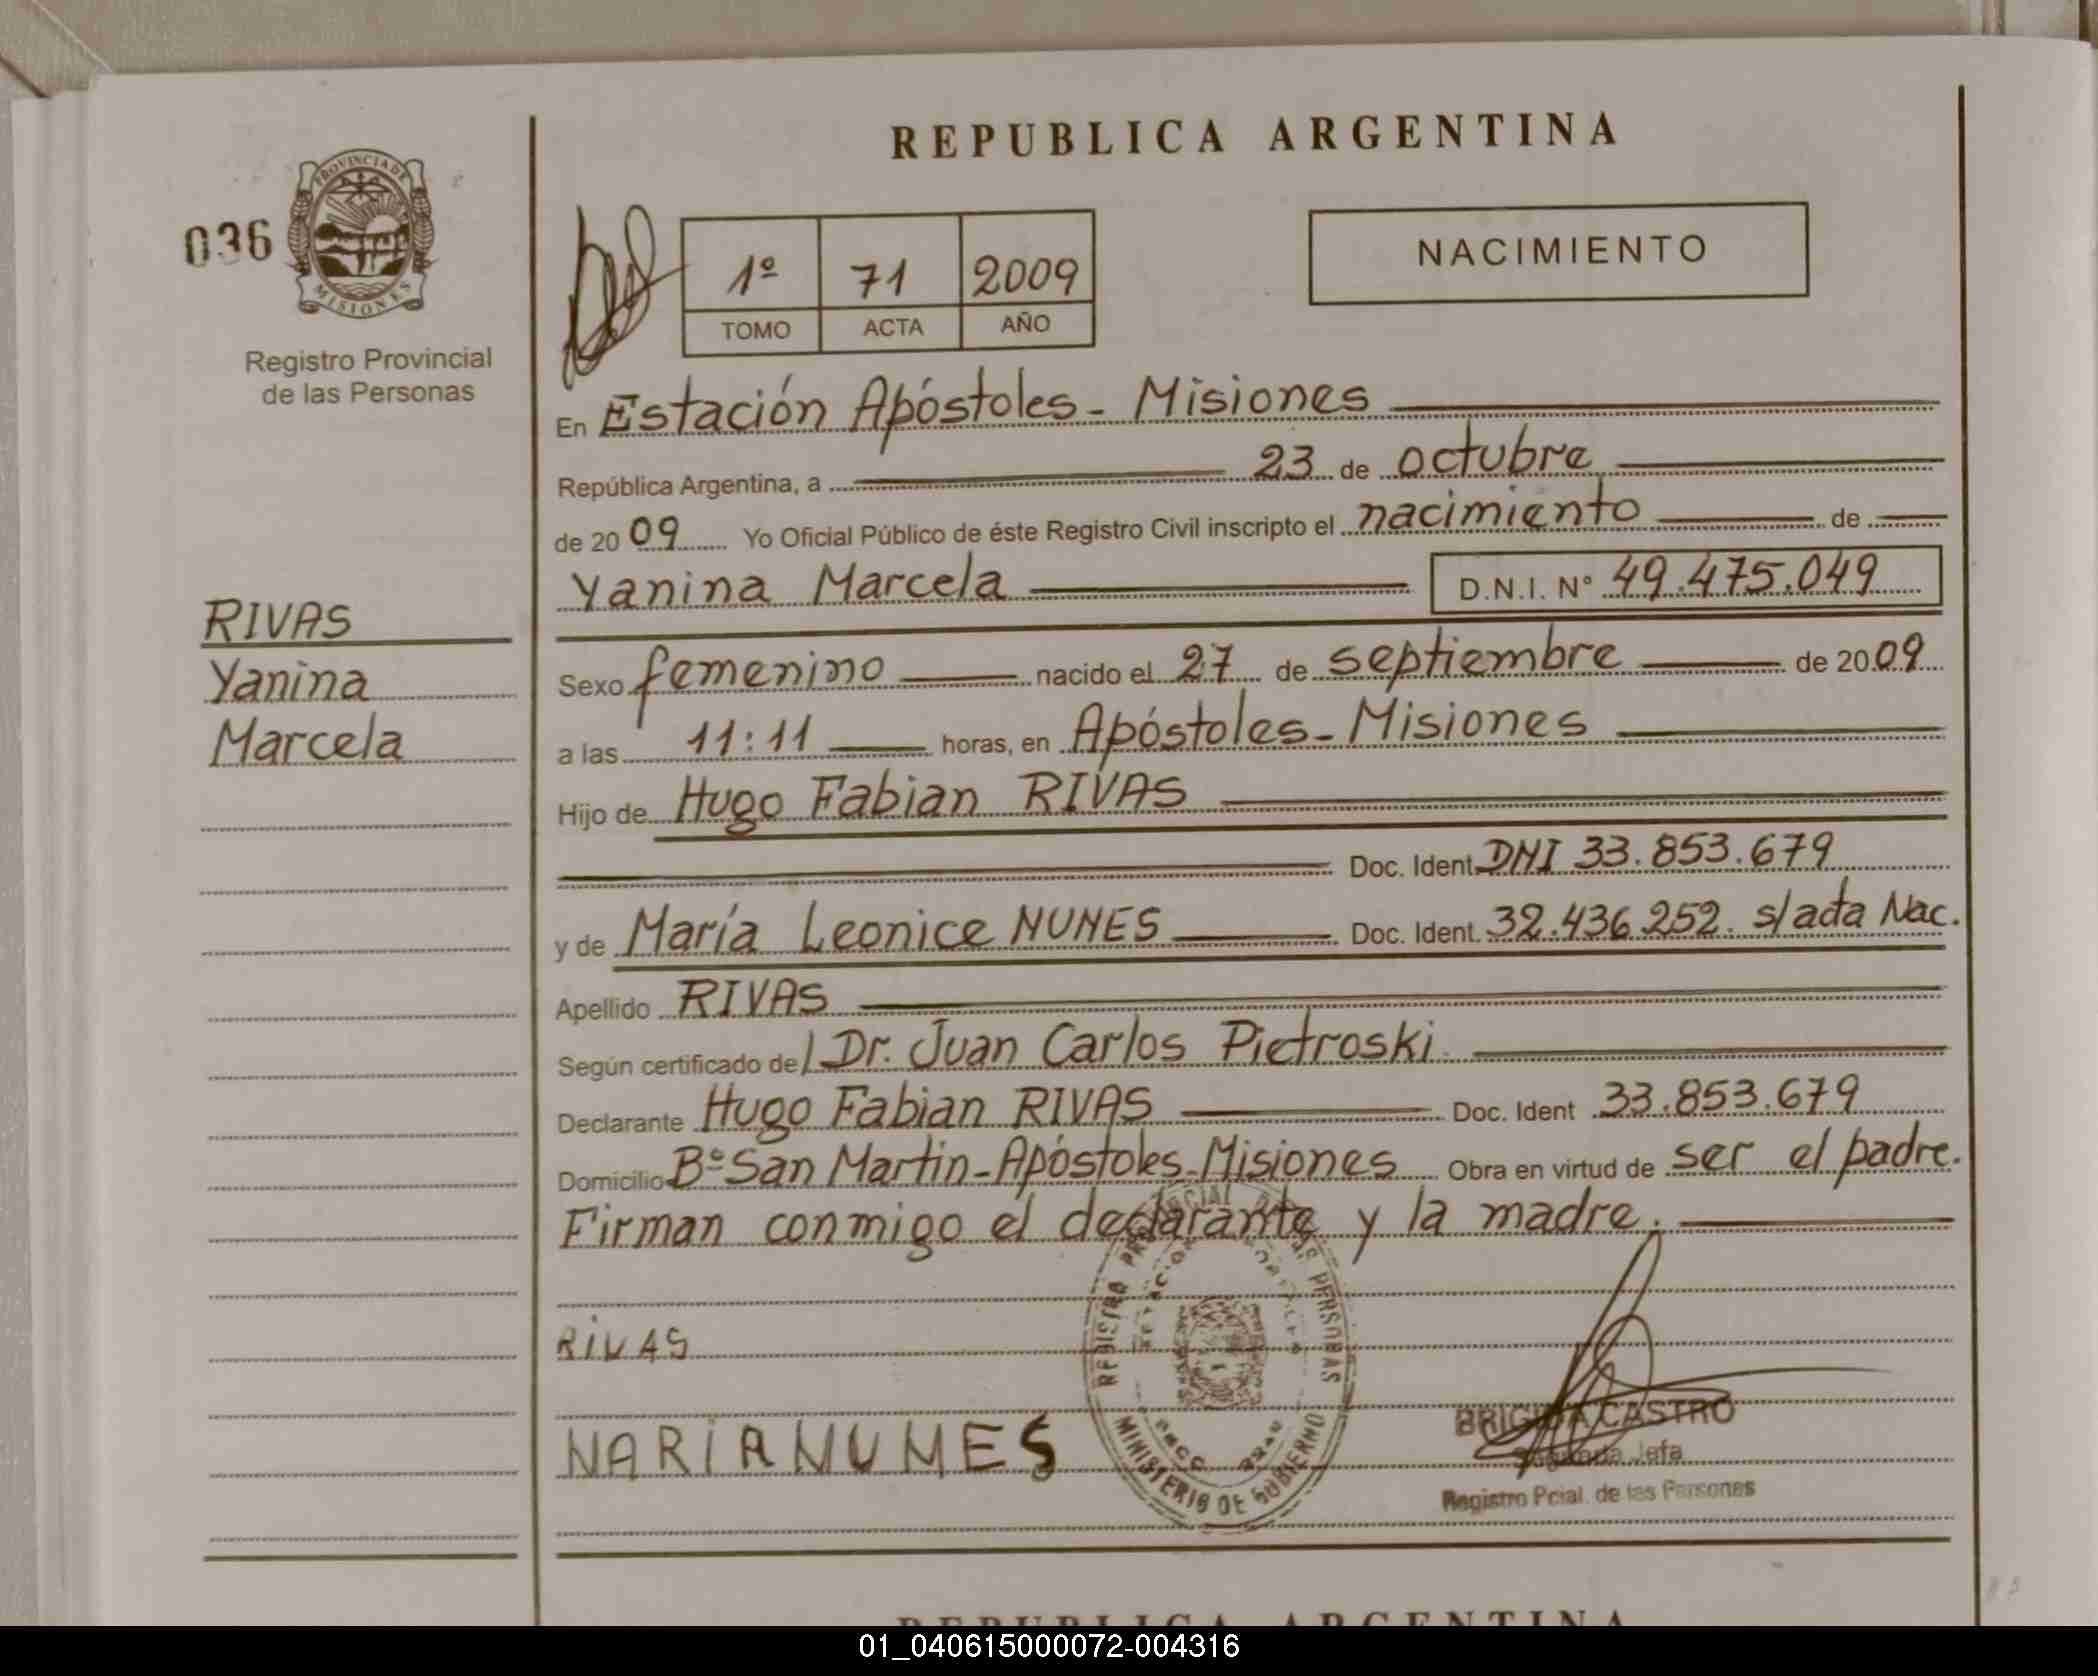 REPUBLICA ARGENTINA
036
PROVINCIA DE
MISIONES
Registro Provincial
de las Personas
1º 71 2009
TOMO ACTA AÑO
NACIMIENTO
En Estación Apóstoles - Misiones
República Argentina, a 23 de octubre
de 20 09 Yo Oficial Público de éste Registro Civil inscripto el nacimiento de
Yanina Marcela D.N.I. Nº 49.475.049
RIVAS
Yanina
Marcela
Sexo femenino nacido el 27 de septiembre de 20 09
a las 11:11 horas, en Apóstoles - Misiones
Hijo de Hugo Fabian RIVAS
Doc. Ident. DNI 33.853.679
y de María Leonice NUNES Doc. Ident. 32.436.252. s/acta Nac.
Apellido RIVAS
Según certificado del Dr. Juan Carlos Pietroski
Declarante Hugo Fabian RIVAS Doc. Ident 33.853.679
Domicilio Bº San Martin - Apóstoles - Misiones Obra en virtud de ser el padre.
Firman conmigo el declarante y la madre.
RIVAS
NARIANUMES
REGISTRO PROVINCIAL DE LAS PERSONAS
MINISTERIO DE GOBIERNO
BRIGIDA CASTRO
Jefa
Registro Pcial. de las Personas
REPUBLICA ARGENTINA
01_040615000072-004316